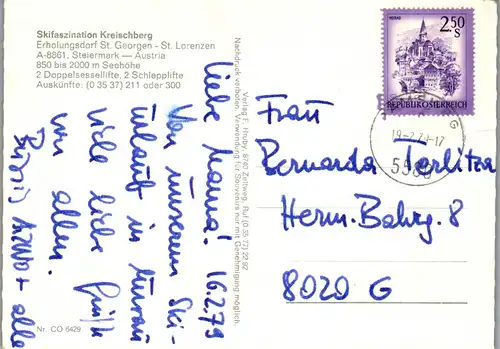 Skifaszination Kreischberg
Erholungsdorf St. Georgen - St. Lorenzen
A-8861, Steiermark — Austria
850 bis 2000 m Seehöhe
2 Doppelsessellifte, 2 Schlepplifte
Auskünfte: (0 35 37) 211 oder 300
16.2.79
Liebe Mama!
Von unserem Ski-
urlaub in Murau
viele liebe Grüße
von allen.
alle
Nr. CO 6429
Verlag F. Hruby, 8740 Zeltweg, Ruf (0 35 77) 22 92
Nachdruck verboten. Verwendung für Souvenirs nur mit Genehmigung möglich.
MURAU
2.50
S
REPUBLIK ÖSTERREICH
19-2.79-17
Frau
Bernarda Terlitza
Herm.-Bahrg. 8
8020 G